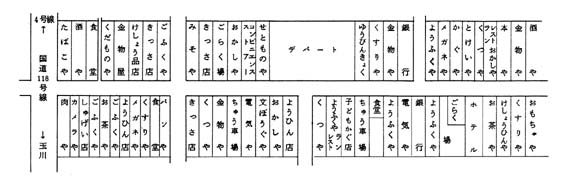 4号線
↑
国道118号線
↓
玉川
たばこや
酒や
食堂
くだものや
金物屋
けしょう品店
きっさ店
ごふくや
みそや
きっさ店
ごらく場
おかしや
コンビニエンス
ストアー
せとものや
デパート
ゆうびんきょく
くすりや
金物や
銀行
ようふくや
メガネや
かぐや
とけいや
くつや
レストラン
おかしや
本や
金物や
酒や
肉や
カメラや
しゅげい店
ごふくや
お茶や
ごふくや
ようひん店
メガネや
くすりや
食堂
パンや
きっさ店
くつや
金物や
ちゅう車場
電気や
文ぼうぐや
おかしや
ようひん店
くつや
ようふくや
レストラン
子どもかぐ店
ちゅう車場
食堂
ようふくや
電気や
銀行
ようふくや
ごらく場
ホテル
お茶や
けしょうひんや
くすりや
おもちゃや